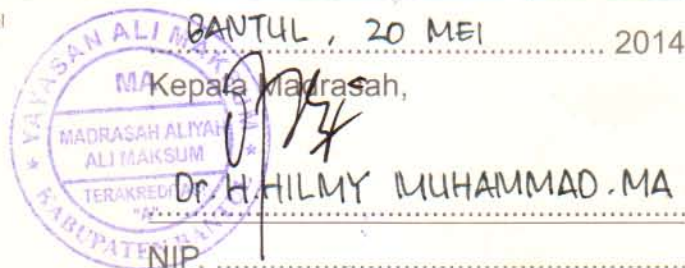 BANTUL, 20 MEI 2014
Kepala Madrasah,
Dr. H. HILMY MUHAMMAD. MA
NIP.
YAYASAN ALI MAKSUM
MA
MADRASAH ALIYAH
ALI MAKSUM
TERAKREDITASI
"A"
KABUPATEN BANTUL